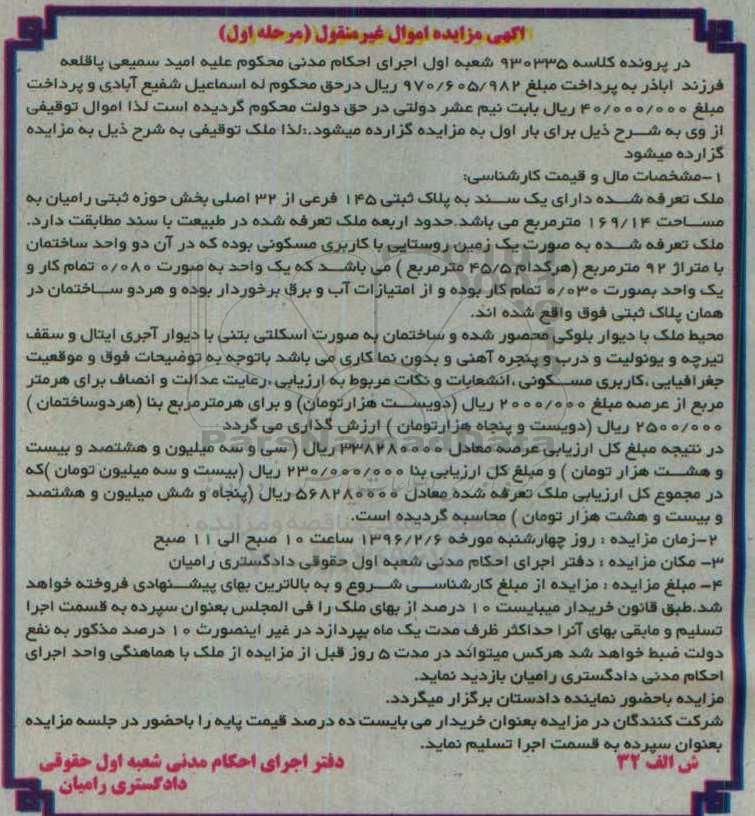 آگهی مزایده اموال غیرمنقول (مرحله اول)
در پرونده کلاسه ۹۳۰۳۳۵ شعبه اول اجرای احکام مدنی محکوم علیه امید سمیعی پاقلعه
فرزند اباذر به پرداخت مبلغ ۹۷۰/۶۰۵/۹۸۲ ریال درحق محکوم له اسماعیل شفیع آبادی و پرداخت
مبلغ ۴۰/۰۰۰/۰۰۰ ریال بابت نیم عشر دولتی در حق دولت محکوم گردیده است لذا اموال توقیفی
از وی به شرح ذیل برای بار اول به مزایده گزارده میشود.:لذا ملک توقیفی به شرح ذیل به مزایده
گزارده میشود
۱-مشخصات مال و قیمت کارشناسی:
ملک تعرفه شده دارای یک سند به پلاک ثبتی ۱۴۵ فرعی از ۳۲ اصلی بخش حوزه ثبتی رامیان به
مساحت ۱۶۹/۱۴ مترمربع می باشد.حدود اربعه ملک تعرفه شده در طبیعت با سند مطابقت دارد.
ملک تعرفه شده به صورت یک زمین روستایی با کاربری مسکونی بوده که در آن دو واحد ساختمان
با متراژ ۹۲ مترمربع (هرکدام ۴۵/۵ مترمربع ) می باشد که یک واحد به صورت ۰/۰۸۰ تمام کار و
یک واحد بصورت ۰/۰۳۰ تمام کار بوده و از امتیازات آب و برق برخوردار بوده و هردو ساختمان در
همان پلاک ثبتی فوق واقع شده اند.
محیط ملک با دیوار بلوکی محصور شده و ساختمان به صورت اسکلتی بتنی با دیوار آجری ایتال و سقف
تیرچه و یونولیت و درب و پنجره آهنی و بدون نما کاری می باشد باتوجه به توضیحات فوق و موقعیت
جغرافیایی ،کاربری مسکونی ،انشعابات و نکات مربوط به ارزیابی ،رعایت عدالت و انصاف برای هرمتر
مربع از عرصه مبلغ ۲۰۰۰/۰۰۰ ریال (دویست هزارتومان) و برای هرمترمربع بنا (هردوساختمان )
۲۵۰۰/۰۰۰ ریال (دویست و پنجاه هزارتومان ) ارزش گذاری می گردد
در نتیجه مبلغ کل ارزیابی عرصه معادل ۳۳۸۲۸۰۰۰۰ ریال ( سی و سه میلیون و هشتصد و بیست
و هشت هزار تومان ) و مبلغ کل ارزیابی بنا ۲۳۰/۰۰۰/۰۰۰ ریال (بیست و سه میلیون تومان )که
در مجموع کل ارزیابی ملک تعرفه شده معادل ۵۶۸۲۸۰۰۰۰ ریال (پنجاه و شش میلیون و هشتصد
و بیست و هشت هزار تومان ) محاسبه گردیده است.
۲-زمان مزایده : روز چهارشنبه مورخه ۱۳۹۶/۲/۶ ساعت ۱۰ صبح الی ۱۱ صبح
۳- مکان مزایده : دفتر اجرای احکام مدنی شعبه اول حقوقی دادگستری رامیان
۴- مبلغ مزایده : مزایده از مبلغ کارشناسی شروع و به بالاترین بهای پیشنهادی فروخته خواهد
شد.طبق قانون خریدار میبایست ۱۰ درصد از بهای ملک را فی المجلس بعنوان سپرده به قسمت اجرا
تسلیم و مابقی بهای آنرا حداکثر ظرف مدت یک ماه بپردازد در غیر اینصورت ۱۰ درصد مذکور به نفع
دولت ضبط خواهد شد هرکس میتواند در مدت ۵ روز قبل از مزایده از ملک با هماهنگی واحد اجرای
احکام مدنی دادگستری رامیان بازدید نماید.
مزایده باحضور نماینده دادستان برگزار میگردد.
شرکت کنندگان در مزایده بعنوان خریدار می بایست ده درصد قیمت پایه را باحضور در جلسه مزایده
بعنوان سپرده به قسمت اجرا تسلیم نماید.
ش الف ۳۲
دفتر اجرای احکام مدنی شعبه اول حقوقی
دادگستری رامیان
ParsNamadData